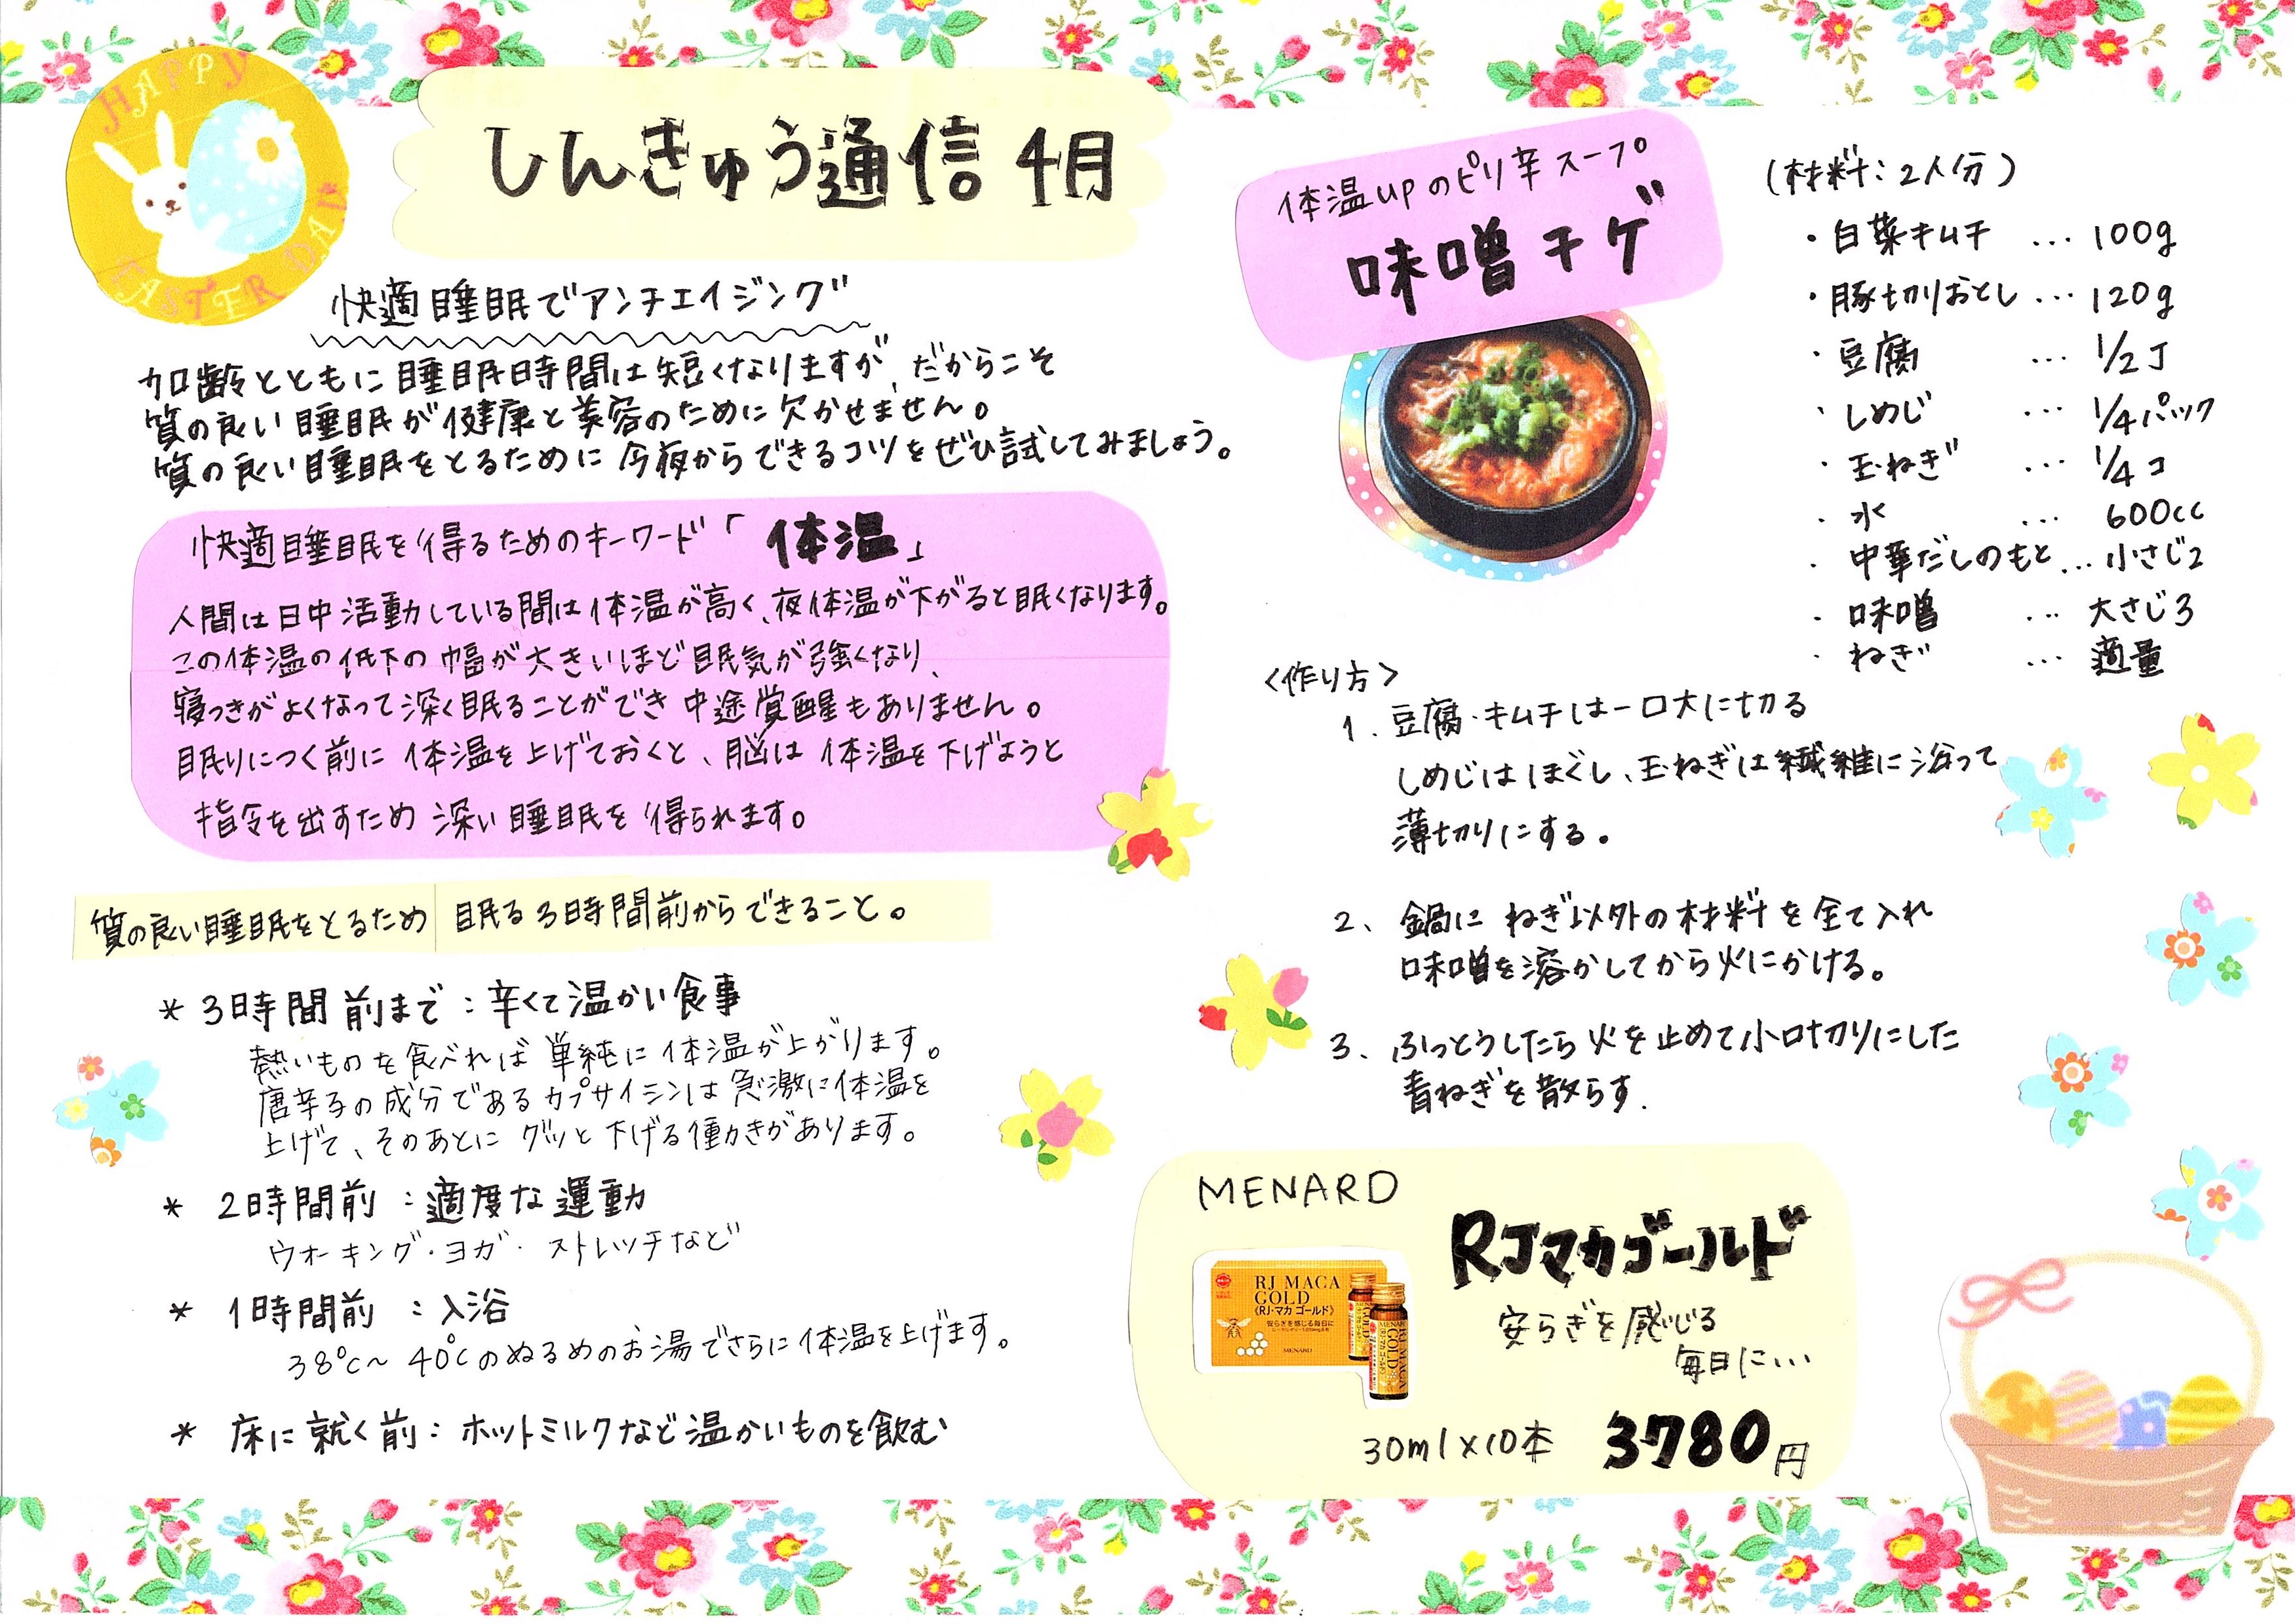 HAPPY
EASTER DAY
しんきゅう通信 4月
快適睡眠でアンチエイジング
加齢とともに睡眠時間は短くなりますが、だからこそ
質の良い睡眠が健康と美容のために欠かせません。
質の良い睡眠をとるために今夜からできるコツをぜひ試してみましょう。
快適睡眠を得るためのキーワード「体温」
人間は日中活動している間は体温が高く、夜体温が下がると眠くなります。
この体温の低下の幅が大きいほど眠気が強くなり、
寝つきがよくなって深く眠ることができ中途覚醒もありません。
眠りにつく前に体温を上げておくと、脳は体温を下げようと
指令を出すため深い睡眠を得られます。
質の良い睡眠をとるため 眠る3時間前からできること。
* 3時間前まで:辛くて温かい食事
熱いものを食べれば単純に体温が上がります。
唐辛子の成分であるカプサイシンは急激に体温を
上げて、そのあとにグッと下げる働きがあります。
* 2時間前:適度な運動
ウォーキング・ヨガ・ストレッチなど
* 1時間前:入浴
38℃~40℃のぬるめのお湯でさらに体温を上げます。
* 床に就く前:ホットミルクなど温かいものを飲む
体温upのピリ辛スープ
味噌チゲ
(材料:2人分)
・白菜キムチ … 100g
・豚切りおとし … 120g
・豆腐 … 1/2丁
・しめじ … 1/4パック
・玉ねぎ … 1/4コ
・水 … 600cc
・中華だしのもと … 小さじ2
・味噌 … 大さじ3
・ねぎ … 適量
<作り方>
1. 豆腐・キムチは一口大に切る
しめじはほぐし、玉ねぎは繊維に沿って
薄切りにする。
2、鍋にねぎ以外の材料を全て入れ
味噌を溶かしてから火にかける。
3、ふっとうしたら火を止めて小口切りにした
青ねぎを散らす.
MENARD
RJマカゴールド
RJ MACA
GOLD
《RJ・マカ ゴールド》
安らぎを感じる毎日に
MENARD
安らぎを感じる
毎日に…
30ml×10本 3780円